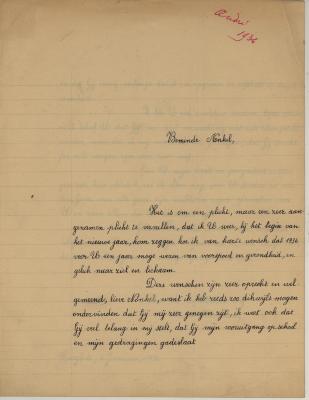 André
1936
Beminde Nonkel,
Het is om een plicht, maar een zeer aan-
genamen plicht te vervullen, dat ik U weer, bij het begin van
het nieuwe jaar, kom zeggen hoe ik van harte wensch dat 1936
voor U een jaar moge wezen van voorspoed en gezondheid, en
geluk naar ziel en lichaam.
Deze wenschen zijn zeer oprecht en wel
gemeend, lieve Nonkel, want ik heb reeds zoo dikwijls mogen
ondervinden dat Gij mij zeer genegen zijt, ik weet ook dat
Gij veel belang in mij stelt, dat Gij mijn vooruitgang op school
en mijn gedragingen gadeslaat